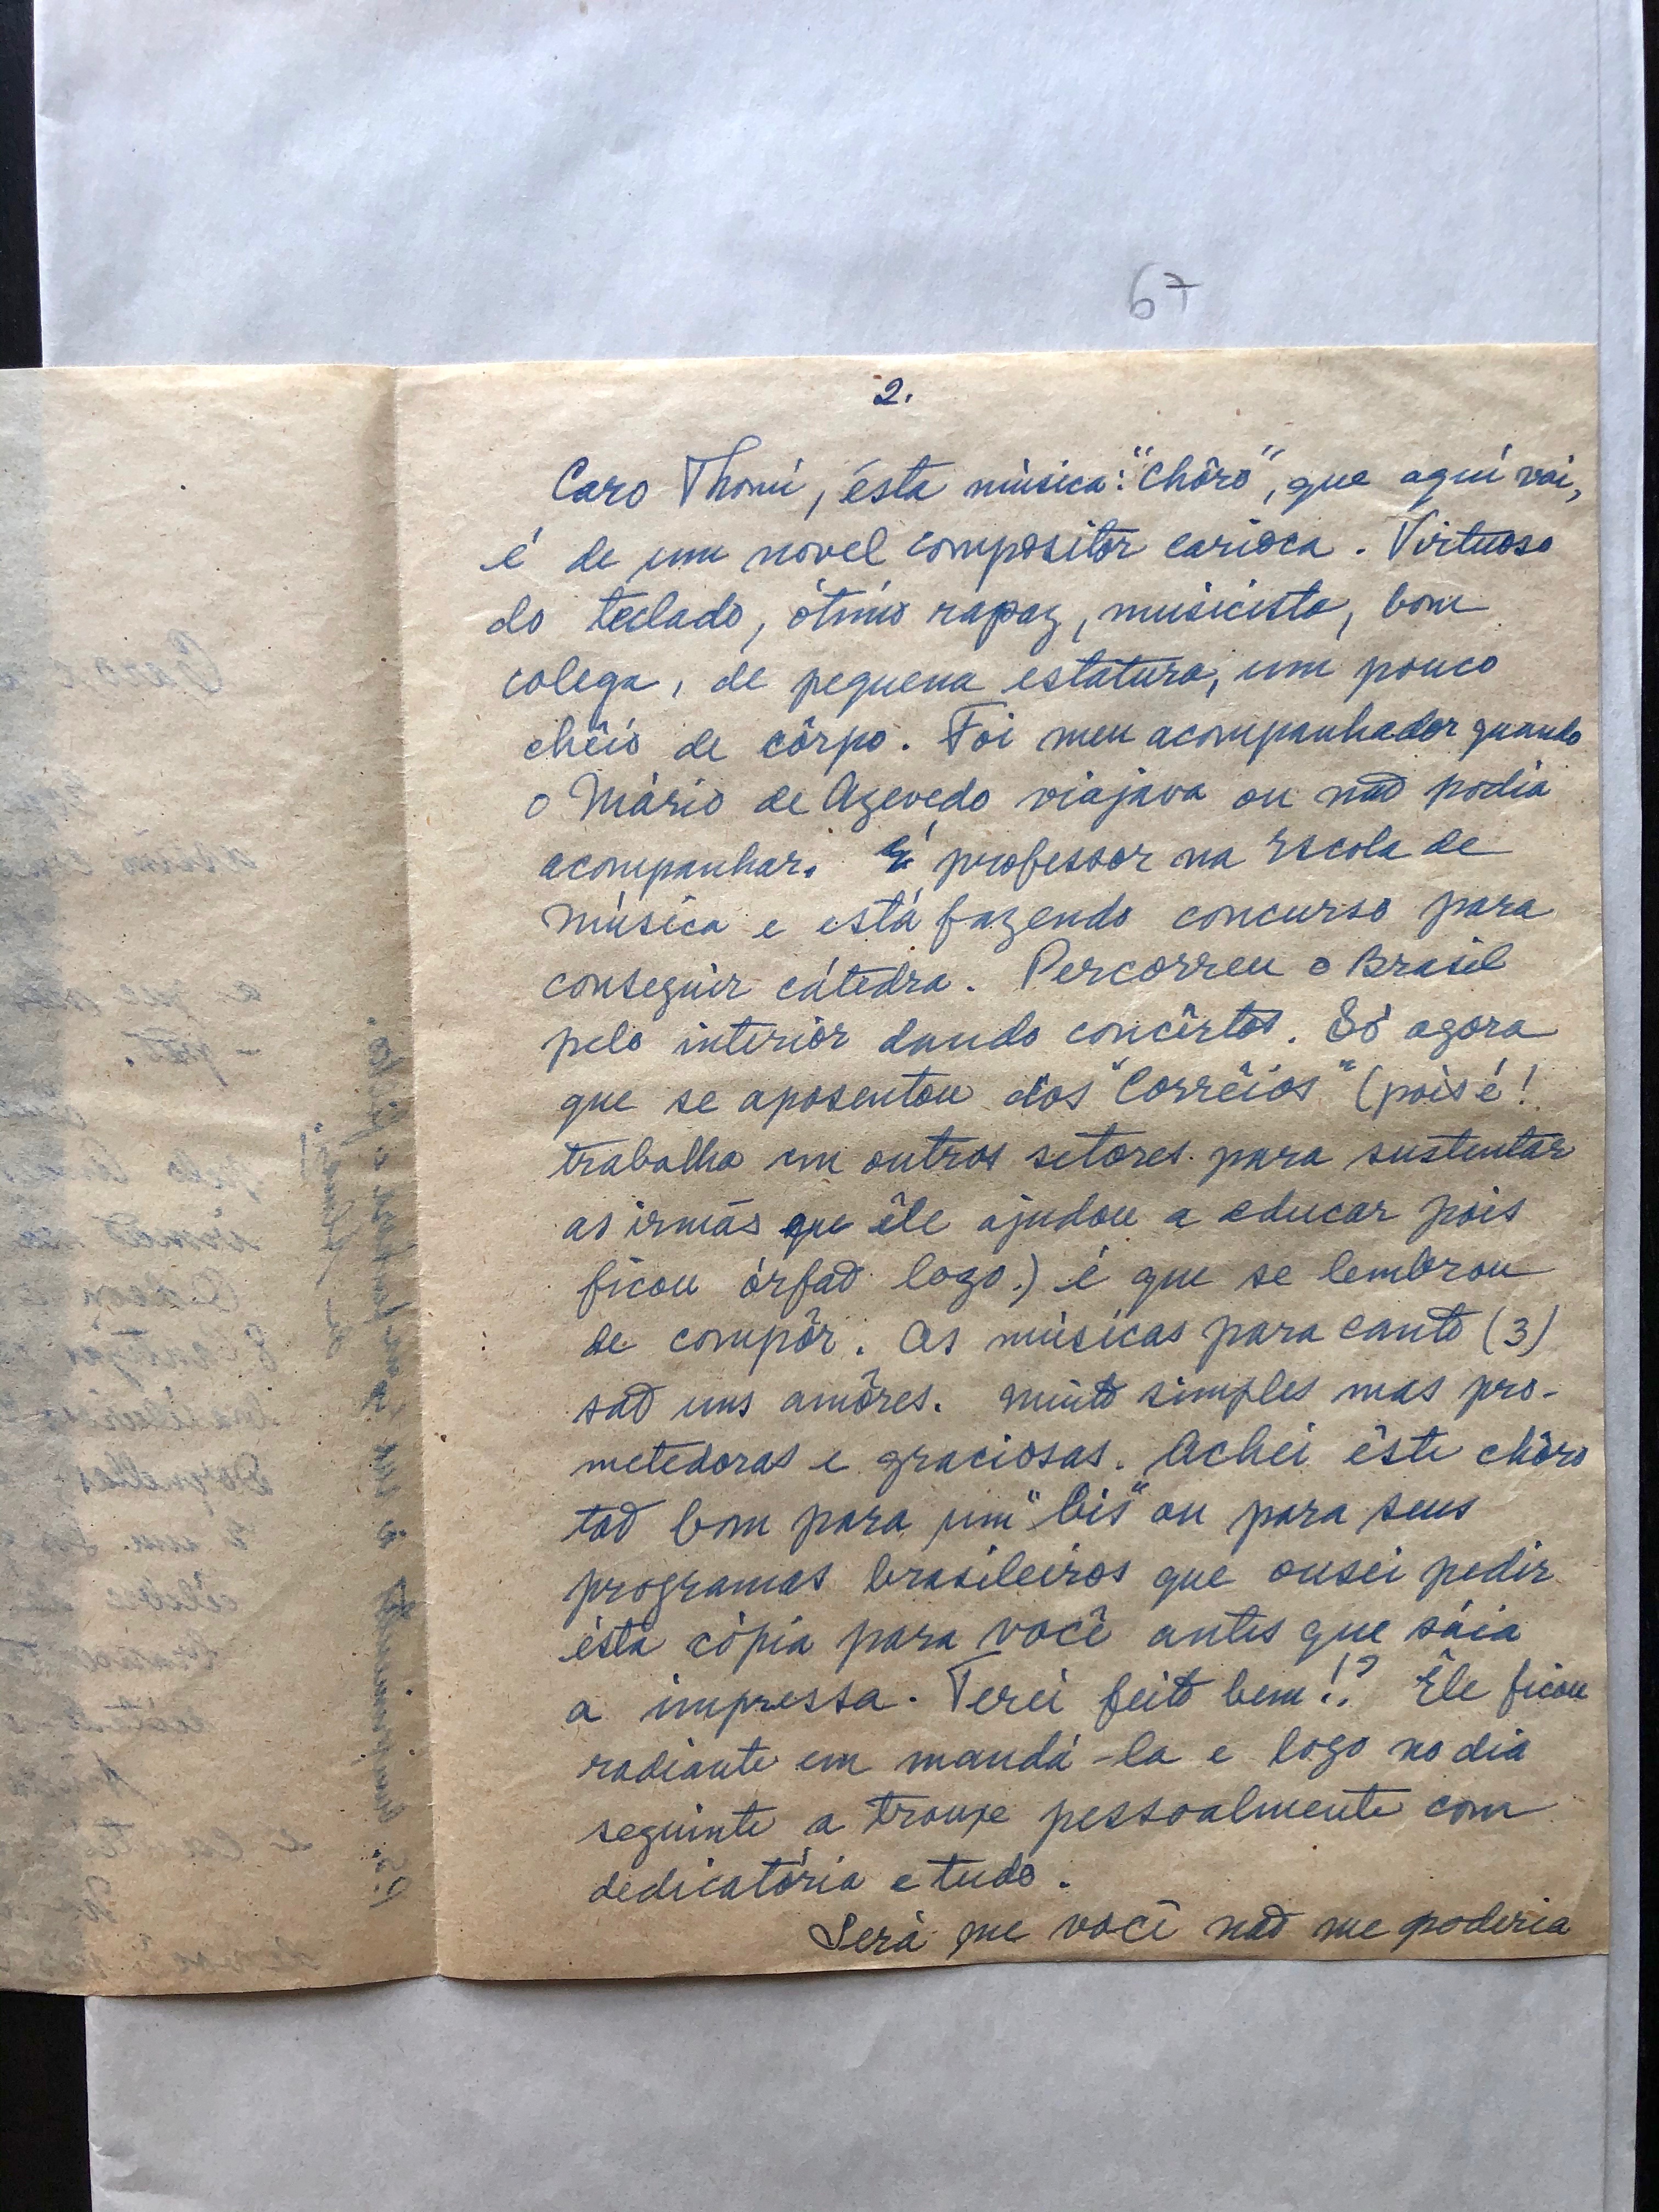 67
2.
Caro Thomi, ésta música: "Chôro", que aquí vai,
é de um novel compositôr carioca. Virtuoso
do teclado, ótimo rapaz, musicista, bom
colega, de pequena estatura, um pouco
chêio de côrpo. Foi meu acompanhador quando
o Mário de Azevedo viajava ou não podia
acompanhar. É professor na Escola de
Música e está fazendo concurso para
conseguir cátedra. Percorreu o Brasil
pelo interiôr dando concêrtos. Só agora
que se aposentou dos "Corrêios" (pois é!
trabalha em outros setores para sustentar
as irmãs que êle ajudou a educar pois
ficou órfão logo.) é que se lembrou
de compôr. As músicas para canto (3)
são uns amôres. Muito simples mas pro-
metedoras e graciosas. Achei êste chôro
tão bom para um "bis" ou para seus
programas brasileiros que ousei pedir
ésta cópia para você antes que sáia
a impressa. Terei feito bem!? Êle ficou
radiante em mandá-la e logo no dia
seguinte a trouxe pessoalmente com
dedicatória e tudo.
Será que você não me poderia